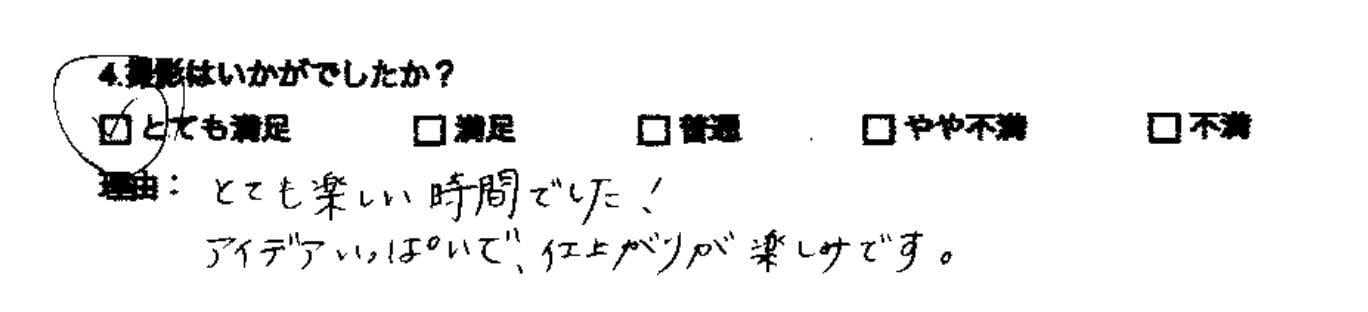 4.撮影はいかがでしたか？
☑とても満足 □満足 □普通 □やや不満 □不満
理由：とても楽しい時間でした！
アイデアいっぱいで、仕上がりが楽しみです。